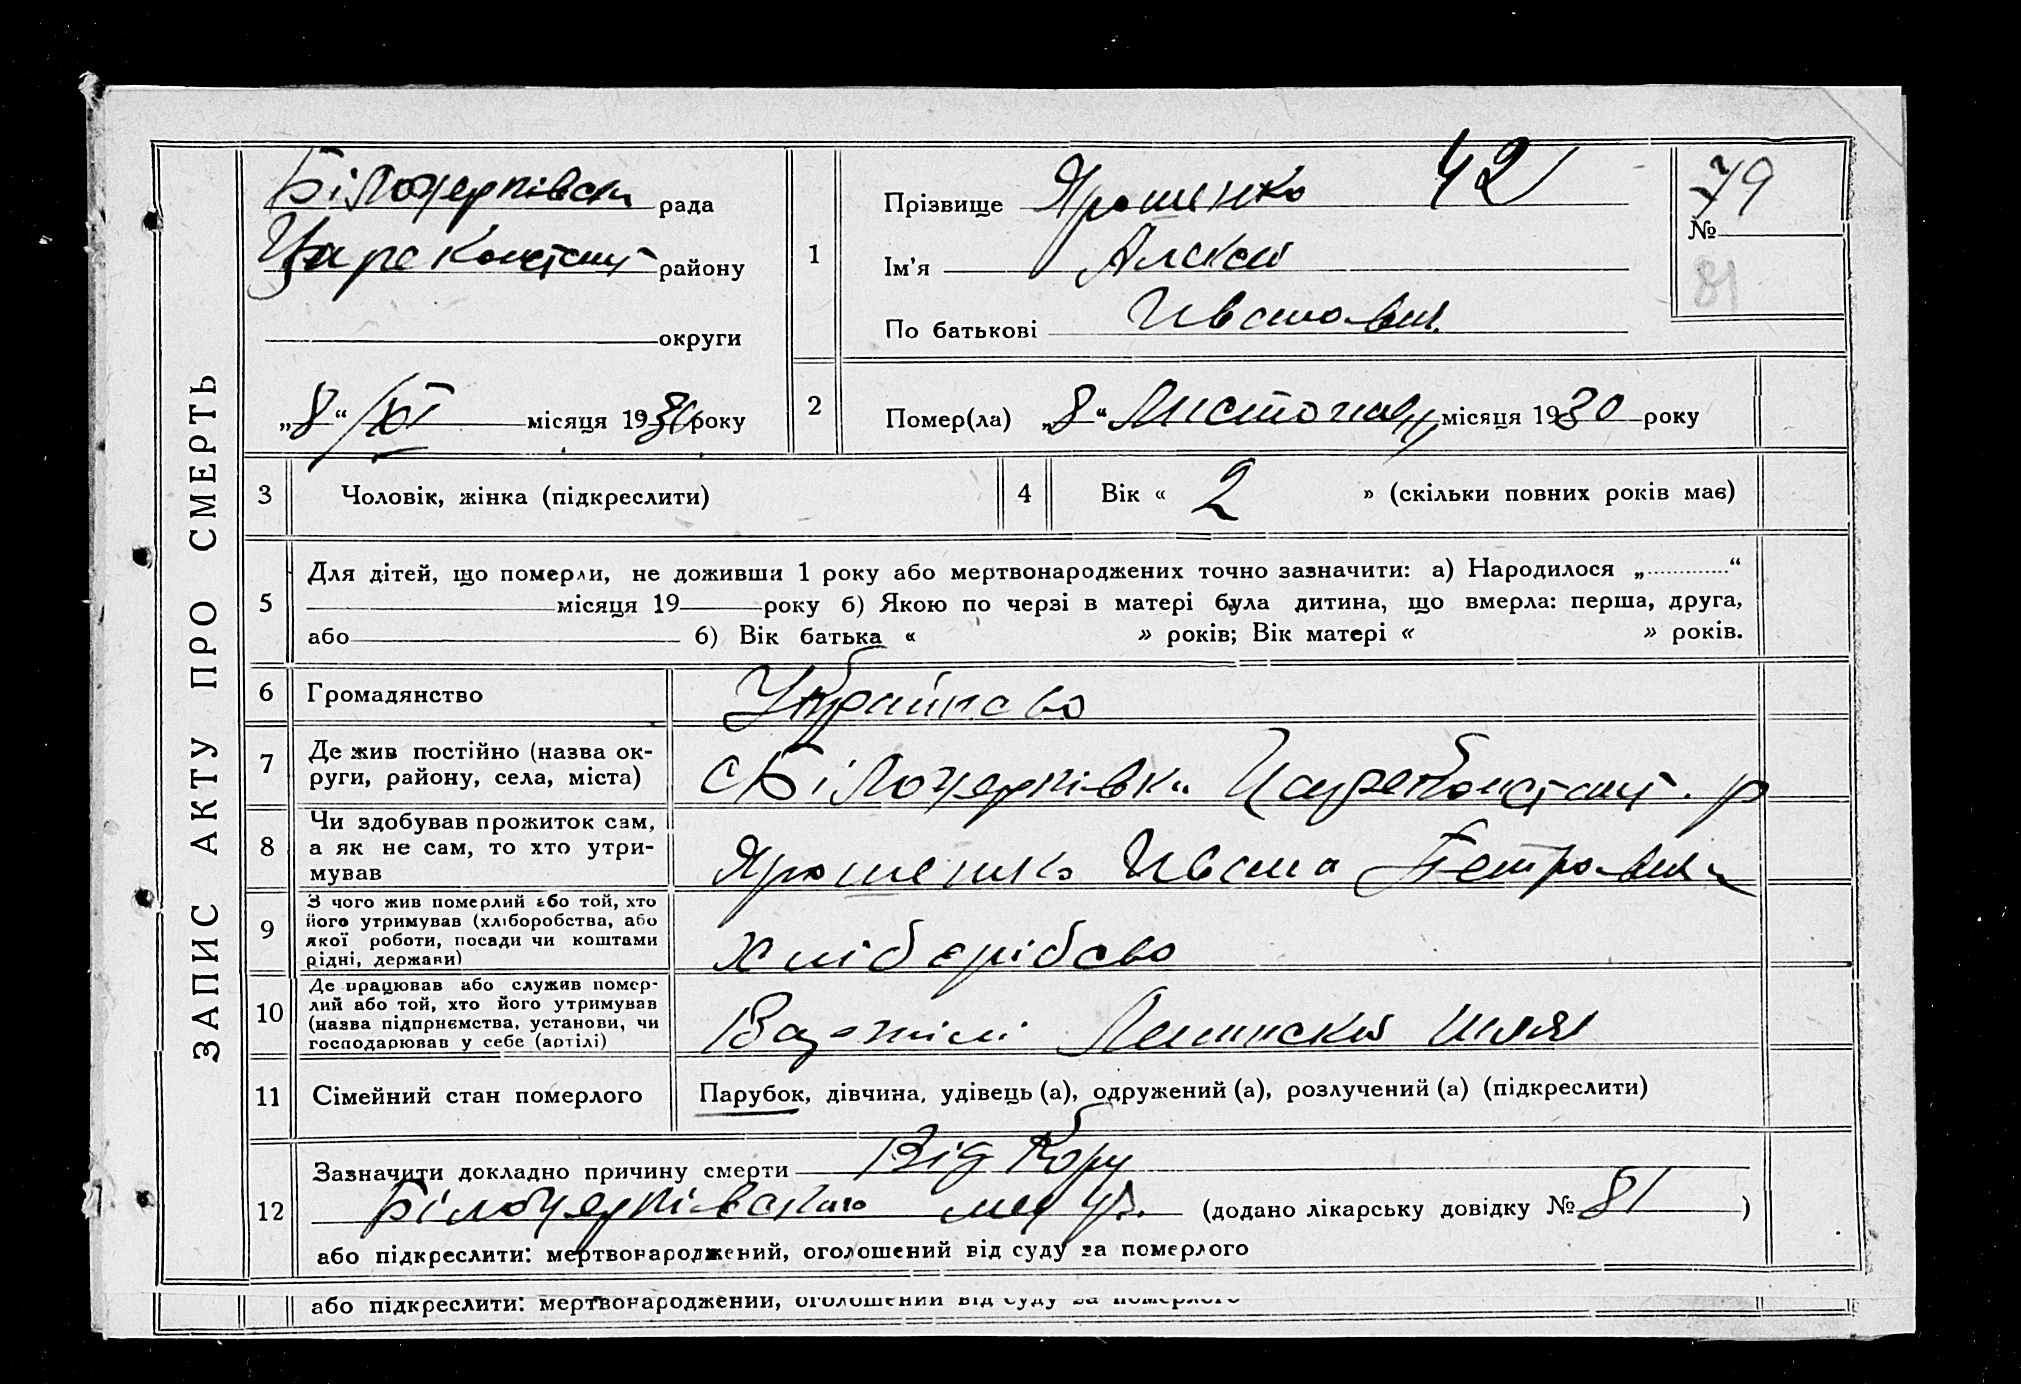 ЗАПИС АКТУ ПРО СМЕРТЬ
Білоцерківськ рада
Царе Констант району
округи
„8“ /XI місяця 1930 року
1
Прізвище Ярошенко 421
Ім'я Алєксей
По батькові Иванович
79
№
81
2
Помер(ла) „8“ Листопаду місяця 1930 року
3
Чоловік, жінка (підкреслити)
4
Вік « 2 » (скільки повних років має)
5
Для дітей, що померли, не доживши 1 року або мертвонароджених точно зазначити: а) Народилося „ “
місяця 19 року б) Якою по черзі в матері була дитина, що вмерла: перша, друга,
або б) Вік батька « » років; Вік матері « » років.
6
Громадянство
Украйнсво
7
Де жив постійно (назва ок-
руги, району, села, міста)
с Білоцерківка Царе Констант. р
8
Чи здобував прожиток сам,
а як не сам, то хто утри-
мував
Ярошенко Ивана Петровича
9
З чого жив померлий або той, хто
його утримував (хліборобства, або
якої роботи, посади чи коштами
рідні, держави)
Хлібєрібсво
10
Де працював або служив помер-
лий або той, хто його утримував
(назва підприємства, установи, чи
господарював у себе (артілі)
В артілі Ленинский шлях
11
Сімейний стан померлого
Парубок, дівчина, удівець (а), одружений (а), розлучений (а) (підкреслити)
12
Зазначити докладно причину смерти Від Кору
Білоцерківського мед уч. (додано лікарську довідку № 81 )
або підкреслити: мертвонароджений, оголошений від суду за померлого
або підкреслити: мертвонароджений, оголошений від суду за померлого